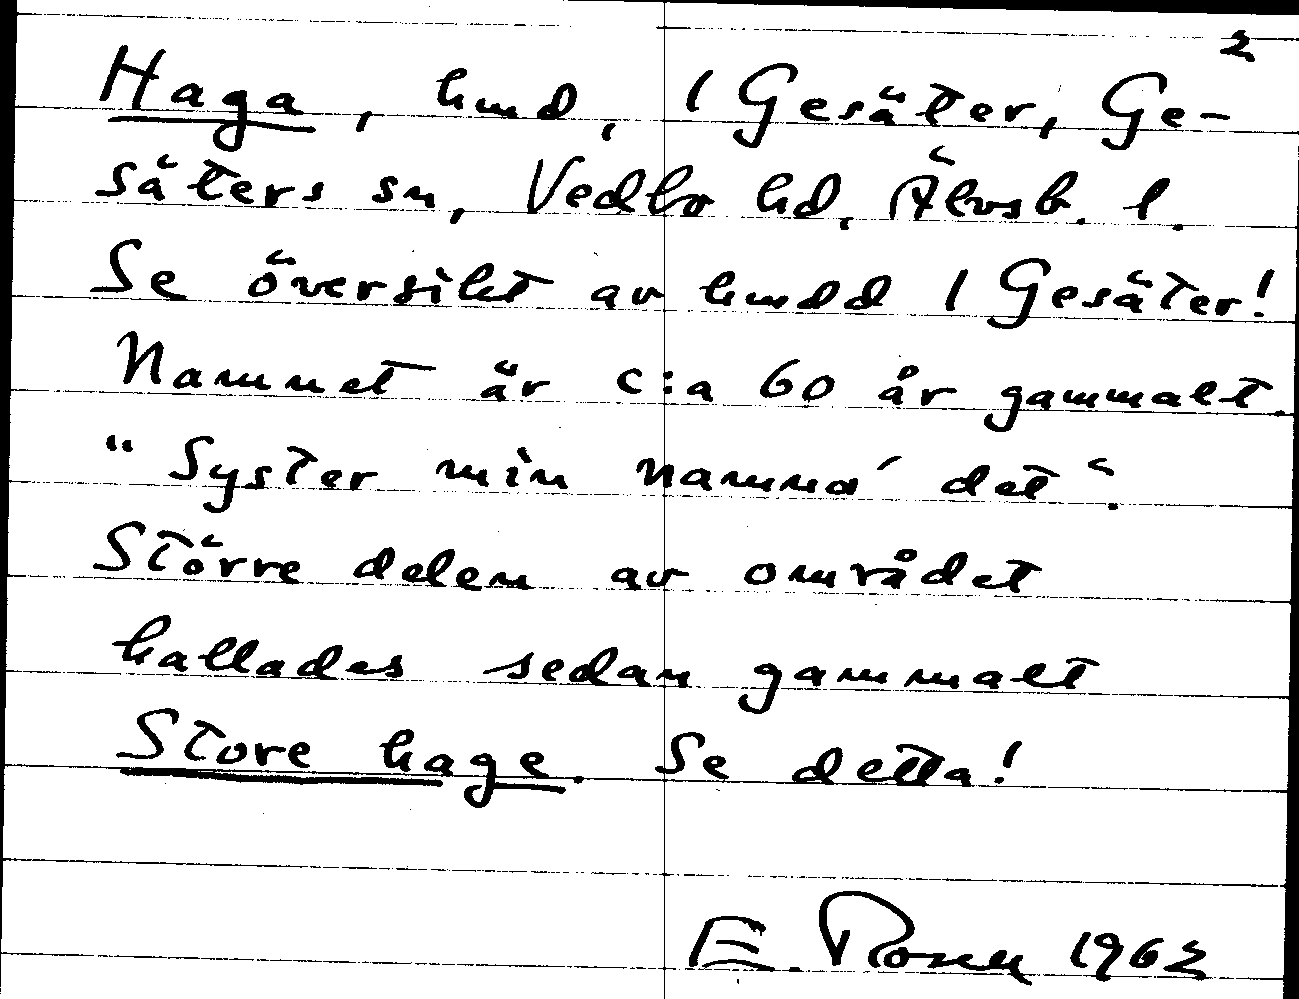 2
Haga, hmd, 1 Gesäter, Ge-
säters sn, Vedbo hd, Älvsb. l.
Se översikt av hmdd 1 Gesäter!
Namnet är c:a 60 år gammalt.
"Syster min namna' det".
Större delen av området
kallades sedan gammalt
Store hage. Se detta!
E. Rosén 1962